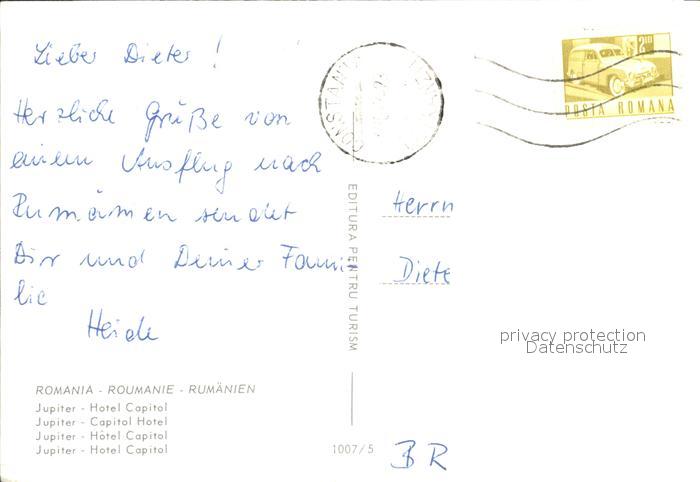 Lieber Dieter!
Herzliche Grüße von
einem Ausflug nach
Rumänien sendet
Dir und Deiner Fami-
lie
Heide
ROMANIA - ROUMANIE - RUMÄNIEN
Jupiter - Hotel Capitol
Jupiter - Capitol Hotel
Jupiter - Hôtel Capitol
Jupiter - Hotel Capitol
EDITURA PENTRU TURISM
1007/5
CONSTANTA
2 LEI
POSTA ROMANA
Herrn
Diete
privacy protection
Datenschutz
BR